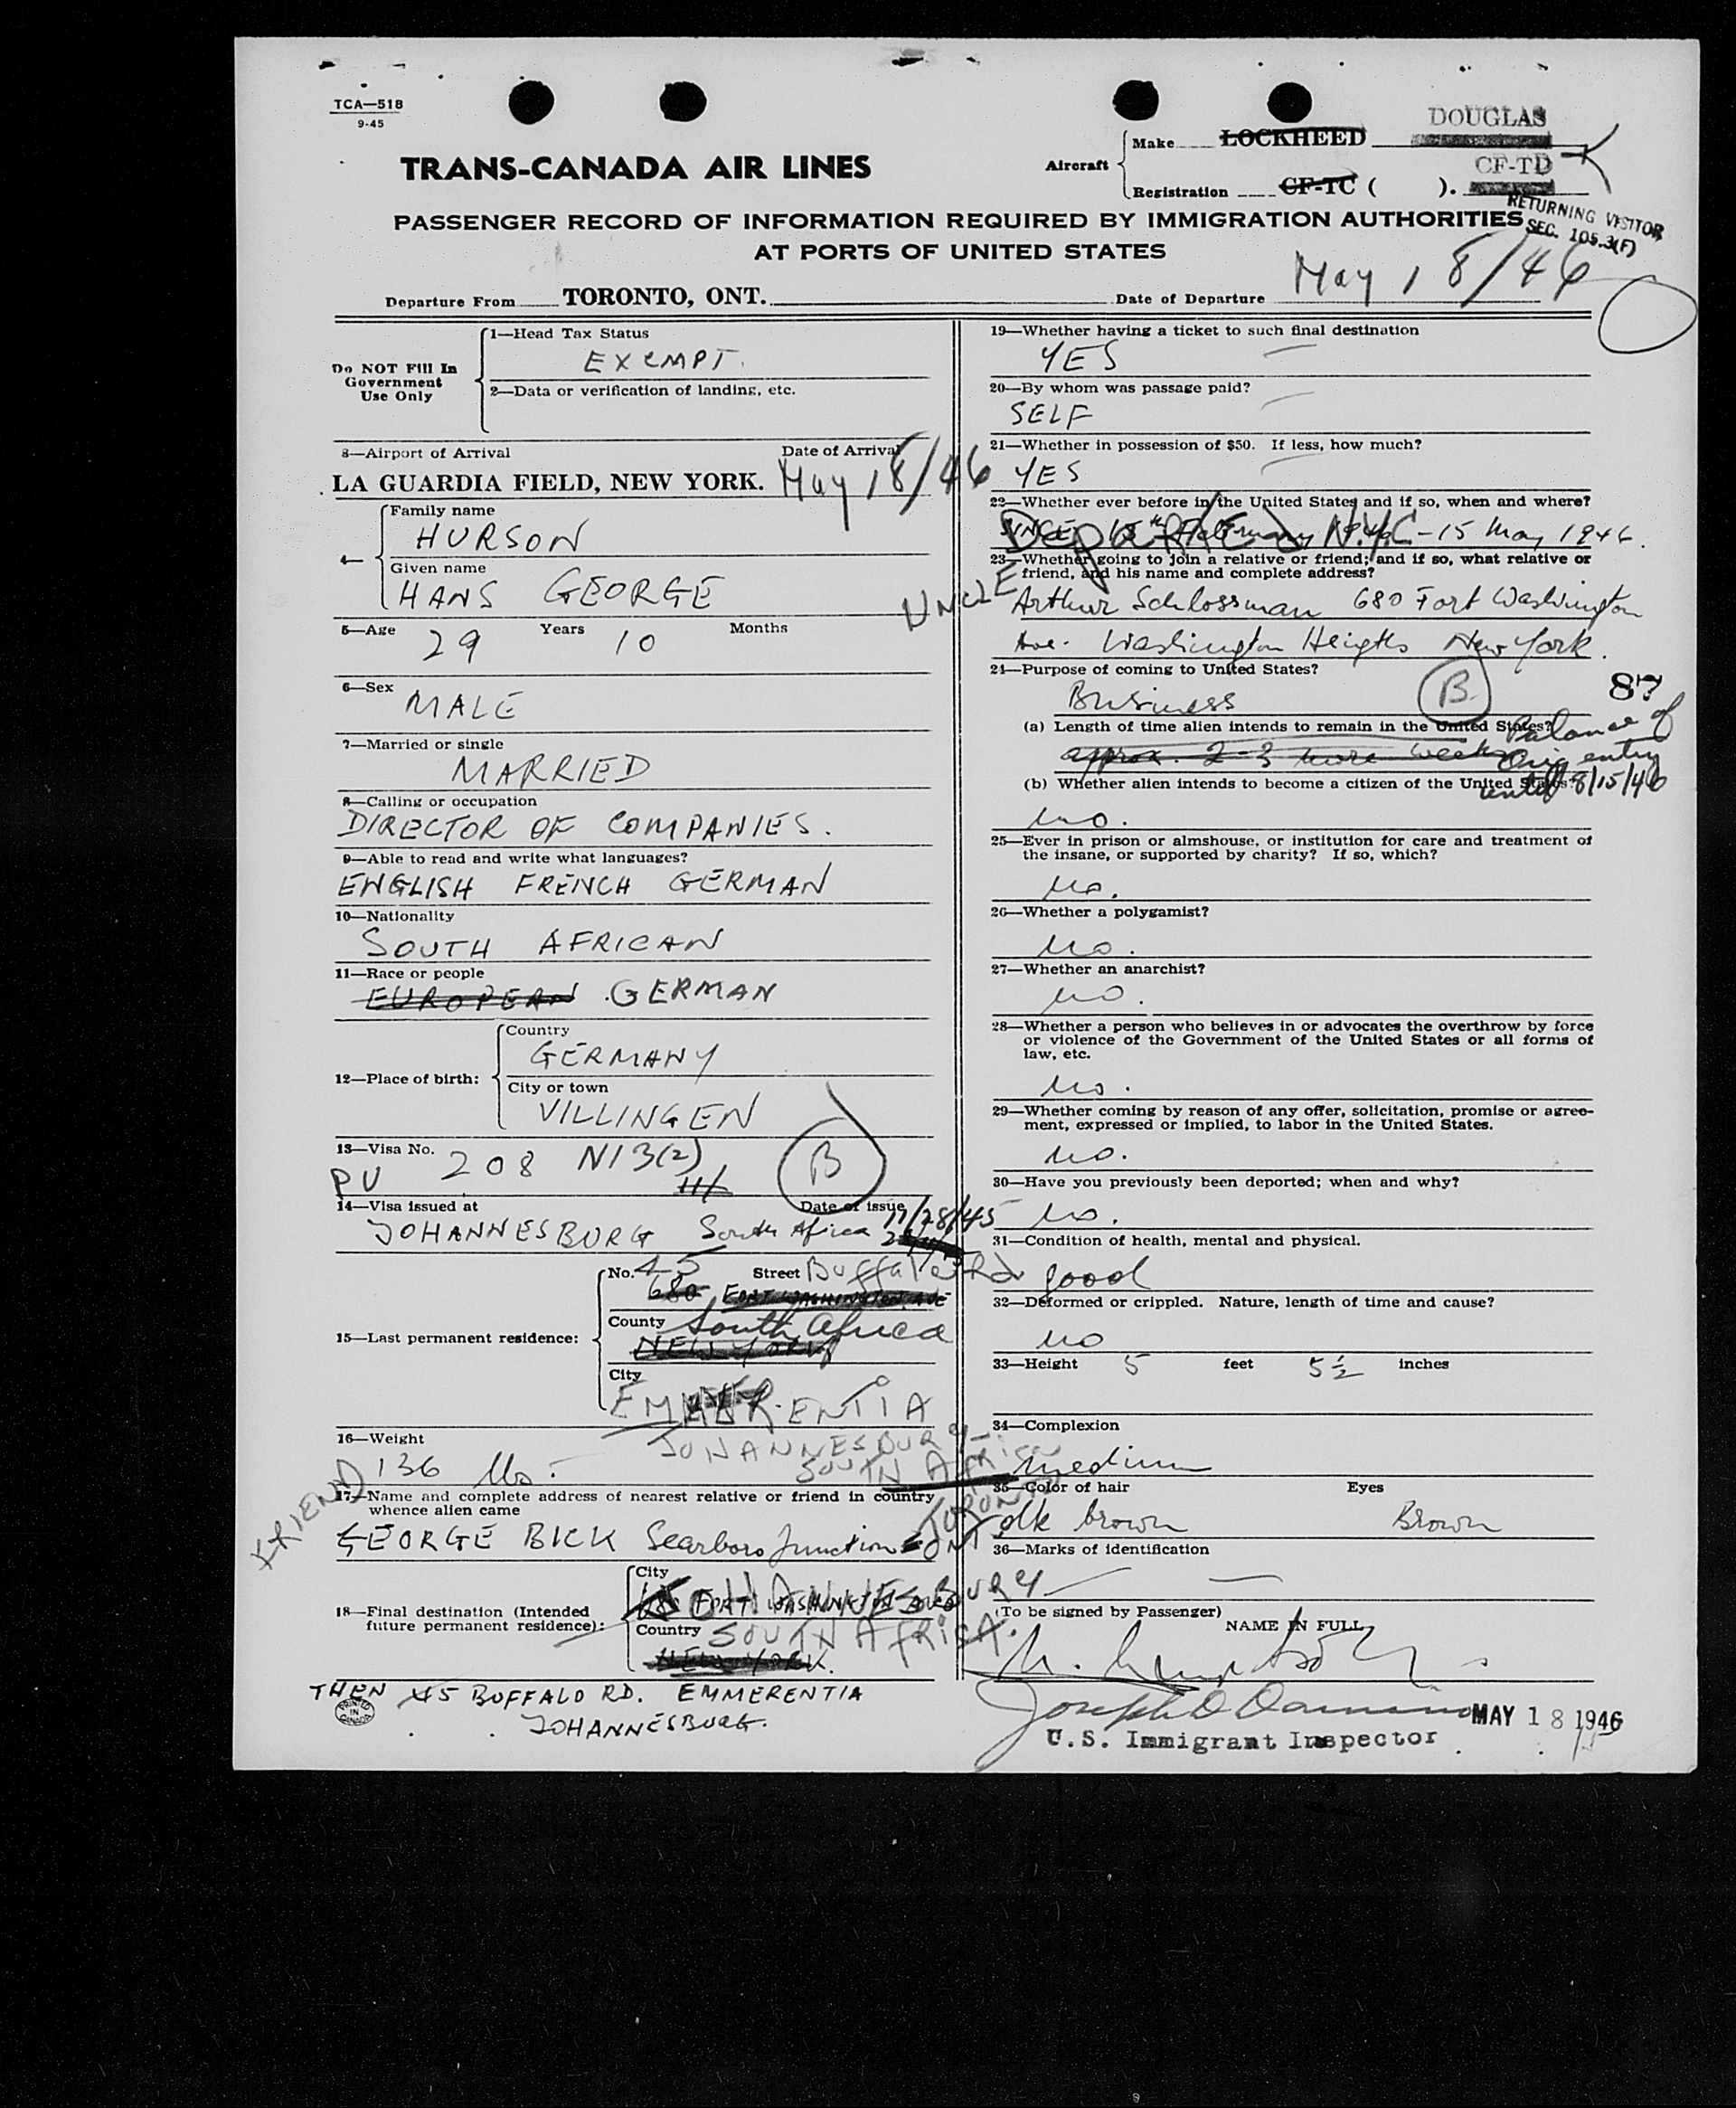 TCA—518
9-45
TRANS-CANADA AIR LINES
Aircraft
Make LOCKHEED DOUGLAS
Registration CF-TC ( ). CF-TD
RETURNING VISITOR
SEC. 105.3(F)
PASSENGER RECORD OF INFORMATION REQUIRED BY IMMIGRATION AUTHORITIES
AT PORTS OF UNITED STATES
Departure From TORONTO, ONT. Date of Departure May 18/46
Do NOT Fill In
Government
Use Only
1—Head Tax Status
EXEMPT.
2—Data or verification of landing, etc.
3—Airport of Arrival Date of Arrival
LA GUARDIA FIELD, NEW YORK. May 18/46
4—
Family name
HURSON
Given name
HANS GEORGE
5—Age 29 Years 10 Months
6—Sex
MALE
7—Married or single
MARRIED
8—Calling or occupation
DIRECTOR OF COMPANIES.
9—Able to read and write what languages?
ENGLISH FRENCH GERMAN
10—Nationality
SOUTH AFRICAN
11—Race or people
EUROPEAN GERMAN
12—Place of birth:
Country
GERMANY
City or town
VILLINGEN
13—Visa No. 208 N13(2)
PV
B
14—Visa issued at Date of issue
JOHANNESBURG South Africa 11/28/45
15—Last permanent residence:
No. 45 Street Buffalo Rd
680 FORT WASHINGTON AVE
County South Africa
NEW YORK
City
EMMERENTIA
JOHANNESBURG
SOUTH AFRICA
16—Weight
136 lbs.
FRIEND
17—Name and complete address of nearest relative or friend in country
whence alien came
TORONTO
GEORGE BICK Scarboro Junction ONT
18—Final destination (Intended
future permanent residence):
City
JOHANNESBURG
680 FORT WASHINGTON AVE
Country SOUTH AFRICA.
NEW YORK.
THEN 45 BUFFALO RD. EMMERENTIA
JOHANNESBURG.
PRINTED
IN
CANADA
19—Whether having a ticket to such final destination
YES
20—By whom was passage paid?
SELF
21—Whether in possession of $50. If less, how much?
YES
22—Whether ever before in the United States and if so, when and where?
Departed N.Y.C.
SINCE 15th February 1946 - 15 May 1946.
23—Whether going to join a relative or friend; and if so, what relative or
friend, and his name and complete address?
UNCLE Arthur Schlossman 680 Fort Washington
Ave. Washington Heigths New York.
24—Purpose of coming to United States?
Business B 87
(a) Length of time alien intends to remain in the United States?
approx. 2-3 more weeks
Balance of
Orig entry
until 8/15/46
(b) Whether alien intends to become a citizen of the United States?
no.
25—Ever in prison or almshouse, or institution for care and treatment of
the insane, or supported by charity? If so, which?
no.
26—Whether a polygamist?
no.
27—Whether an anarchist?
no.
28—Whether a person who believes in or advocates the overthrow by force
or violence of the Government of the United States or all forms of
law, etc.
no.
29—Whether coming by reason of any offer, solicitation, promise or agree-
ment, expressed or implied, to labor in the United States.
no.
30—Have you previously been deported; when and why?
no.
31—Condition of health, mental and physical.
good
32—Deformed or crippled. Nature, length of time and cause?
no
33—Height 5 feet 5½ inches
34—Complexion
medium
35—Color of hair Eyes
dk brown Brown
36—Marks of identification
(To be signed by Passenger) NAME IN FULL
Joseph D
MAY 18 1946
U.S. Immigrant Inspector